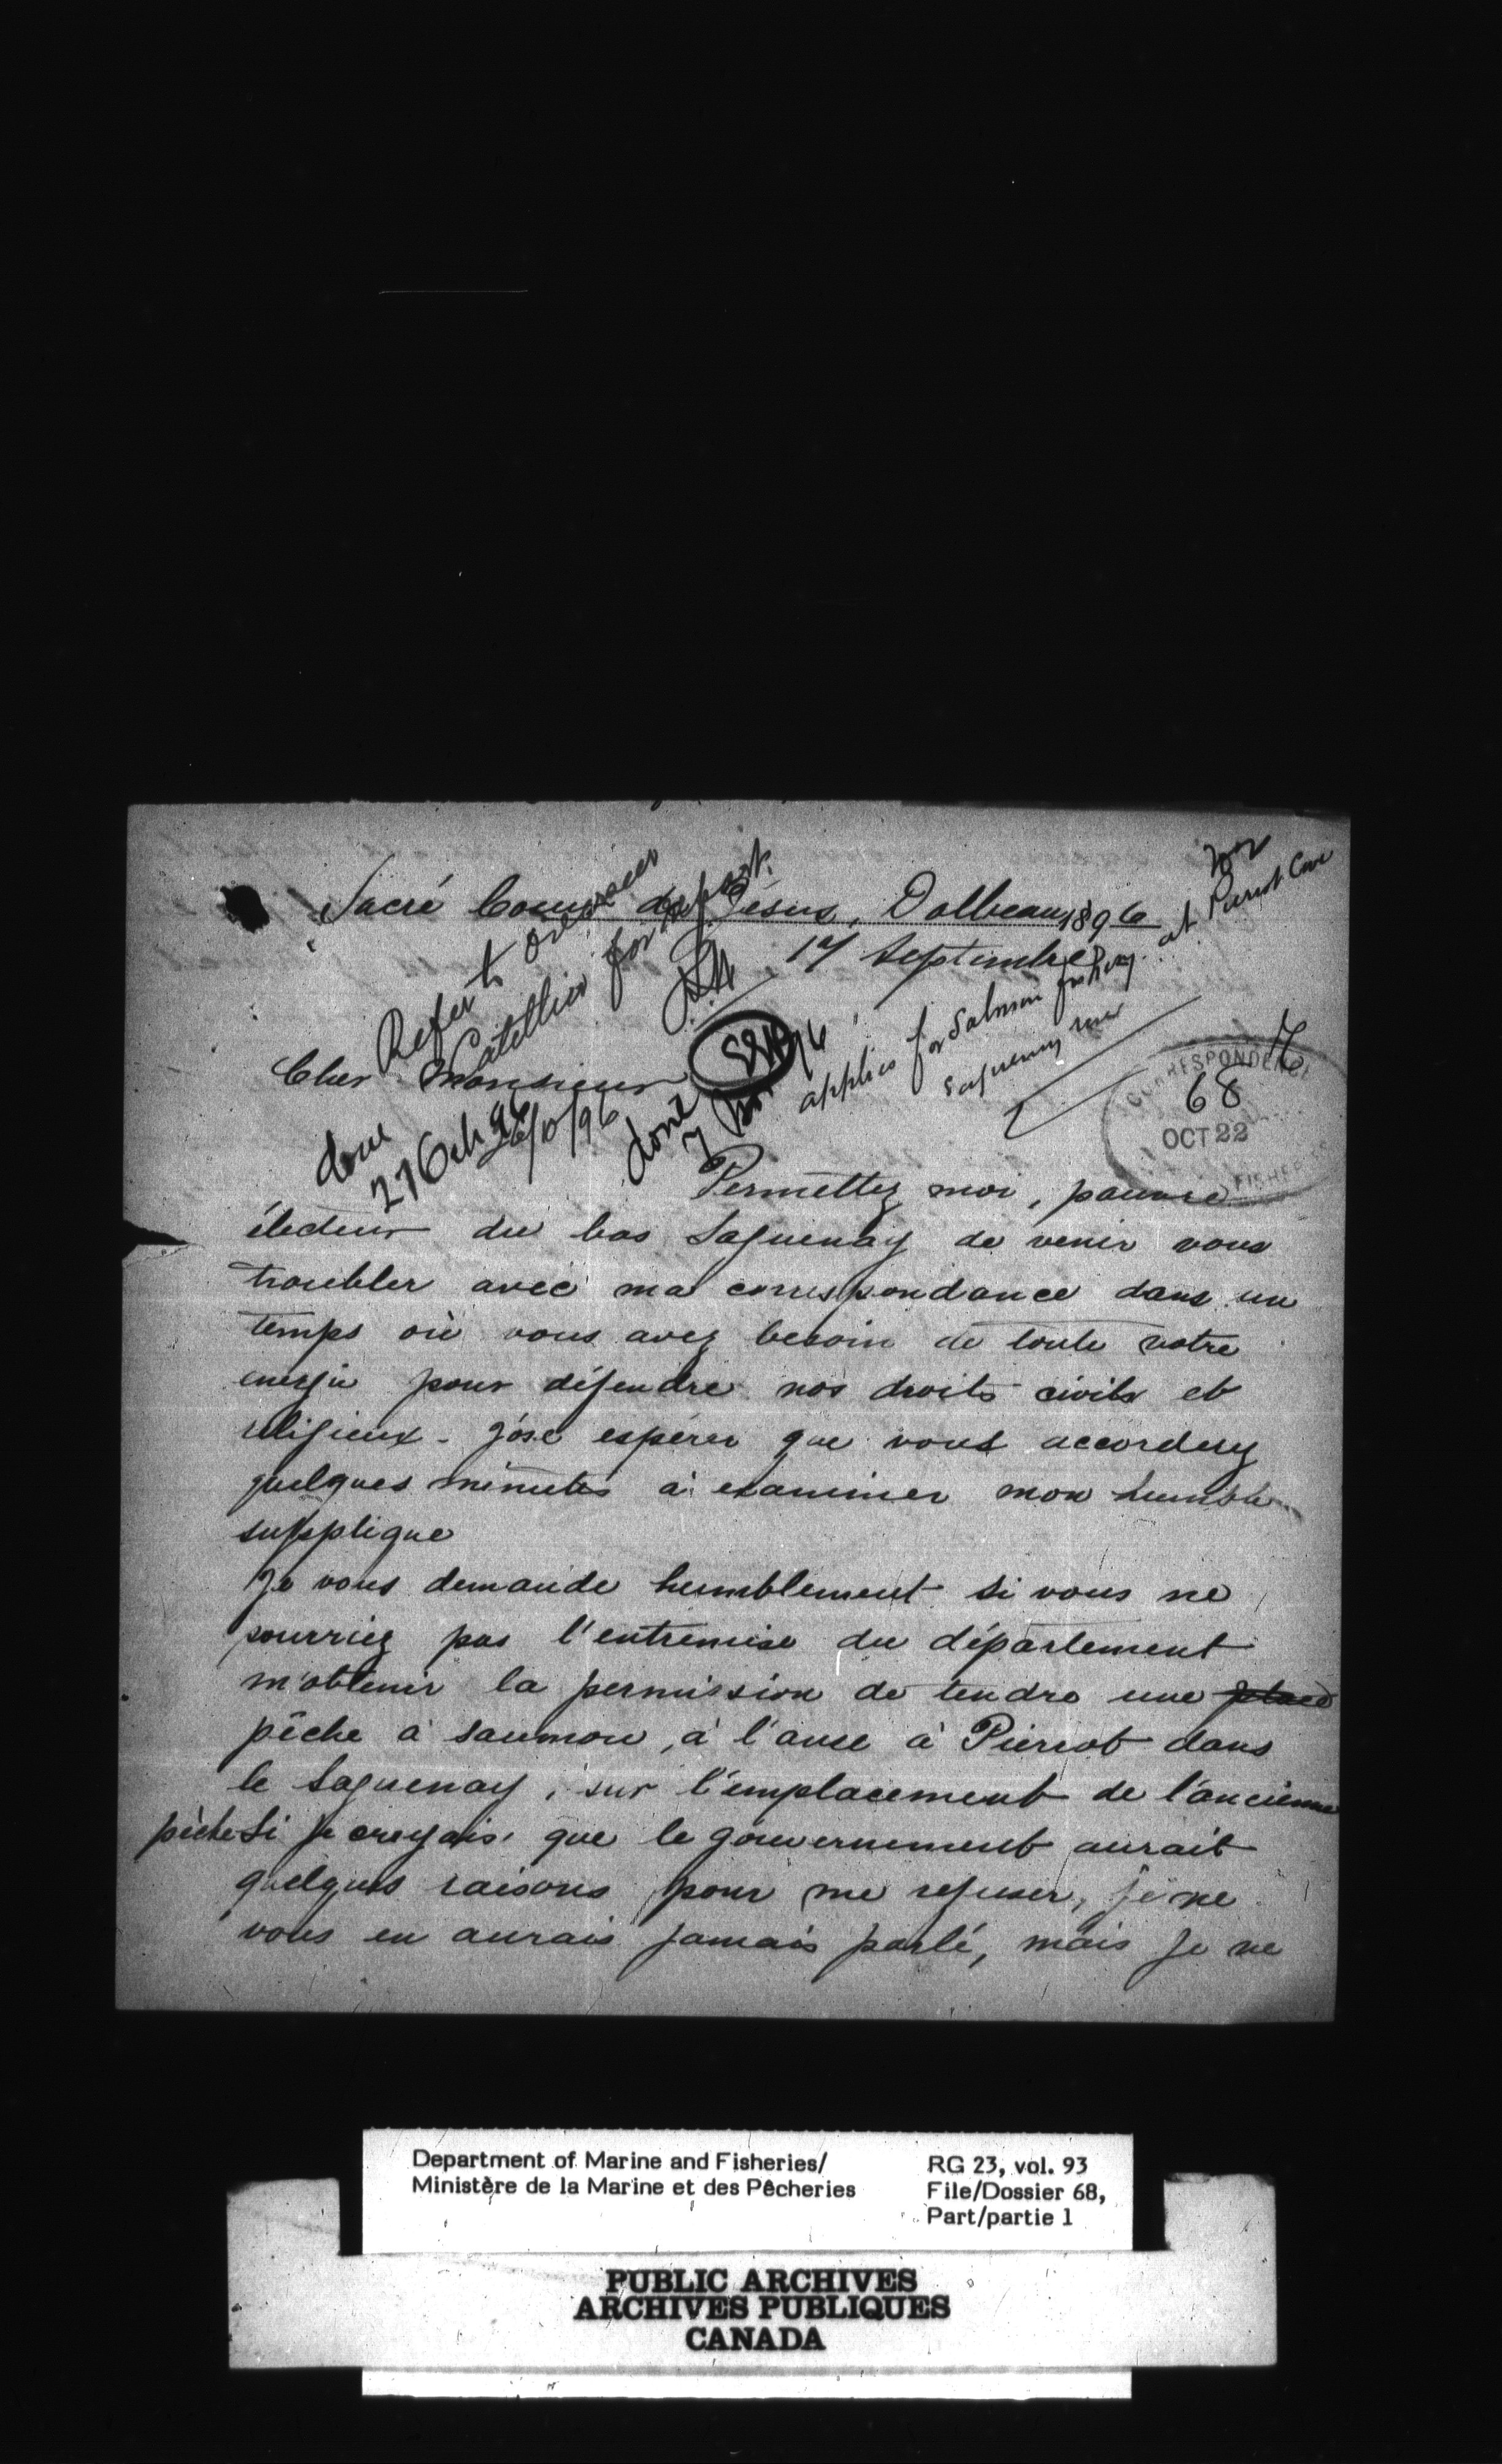 Sacré Coeur de Jésus, Dolbeau 1896
17 Septembre
Refer to overseer
Catellier for report.
at Pierrot Cove
applies for Salmon fishery
Saguenay river
Cher Monsieur
done
27 Oct 96
26/10/96
done
7 Nov 96
CORRESPONDENCE
68
OCT 22
FISHERIES
Permettez moi, pauvre
électeur du bas Saguenay de venir vous
troubler avec ma correspondance dans un
temps où vous avez besoin de toute votre
energie pour défendre nos droits civils et
religieux - J'ose espérer que vous accorderez
quelques minutes à examiner mon humble
suppplique
Je vous demande humblement si vous ne
pourriez pas l'entremise du département
m'obtenir la permission de tendre une place
pêche à saumon, à l'anse à Pierrot dans
le Saguenay, sur l'emplacement de l'ancienne
pèche Si je croyais que le gouvernement aurait
quelques raisons pour me refuser, je ne
vous en aurais jamais parlé, mais je ne
Department of Marine and Fisheries/
Ministère de la Marine et des Pêcheries
RG 23, vol. 93
File/Dossier 68,
Part/partie 1
PUBLIC ARCHIVES
ARCHIVES PUBLIQUES
CANADA